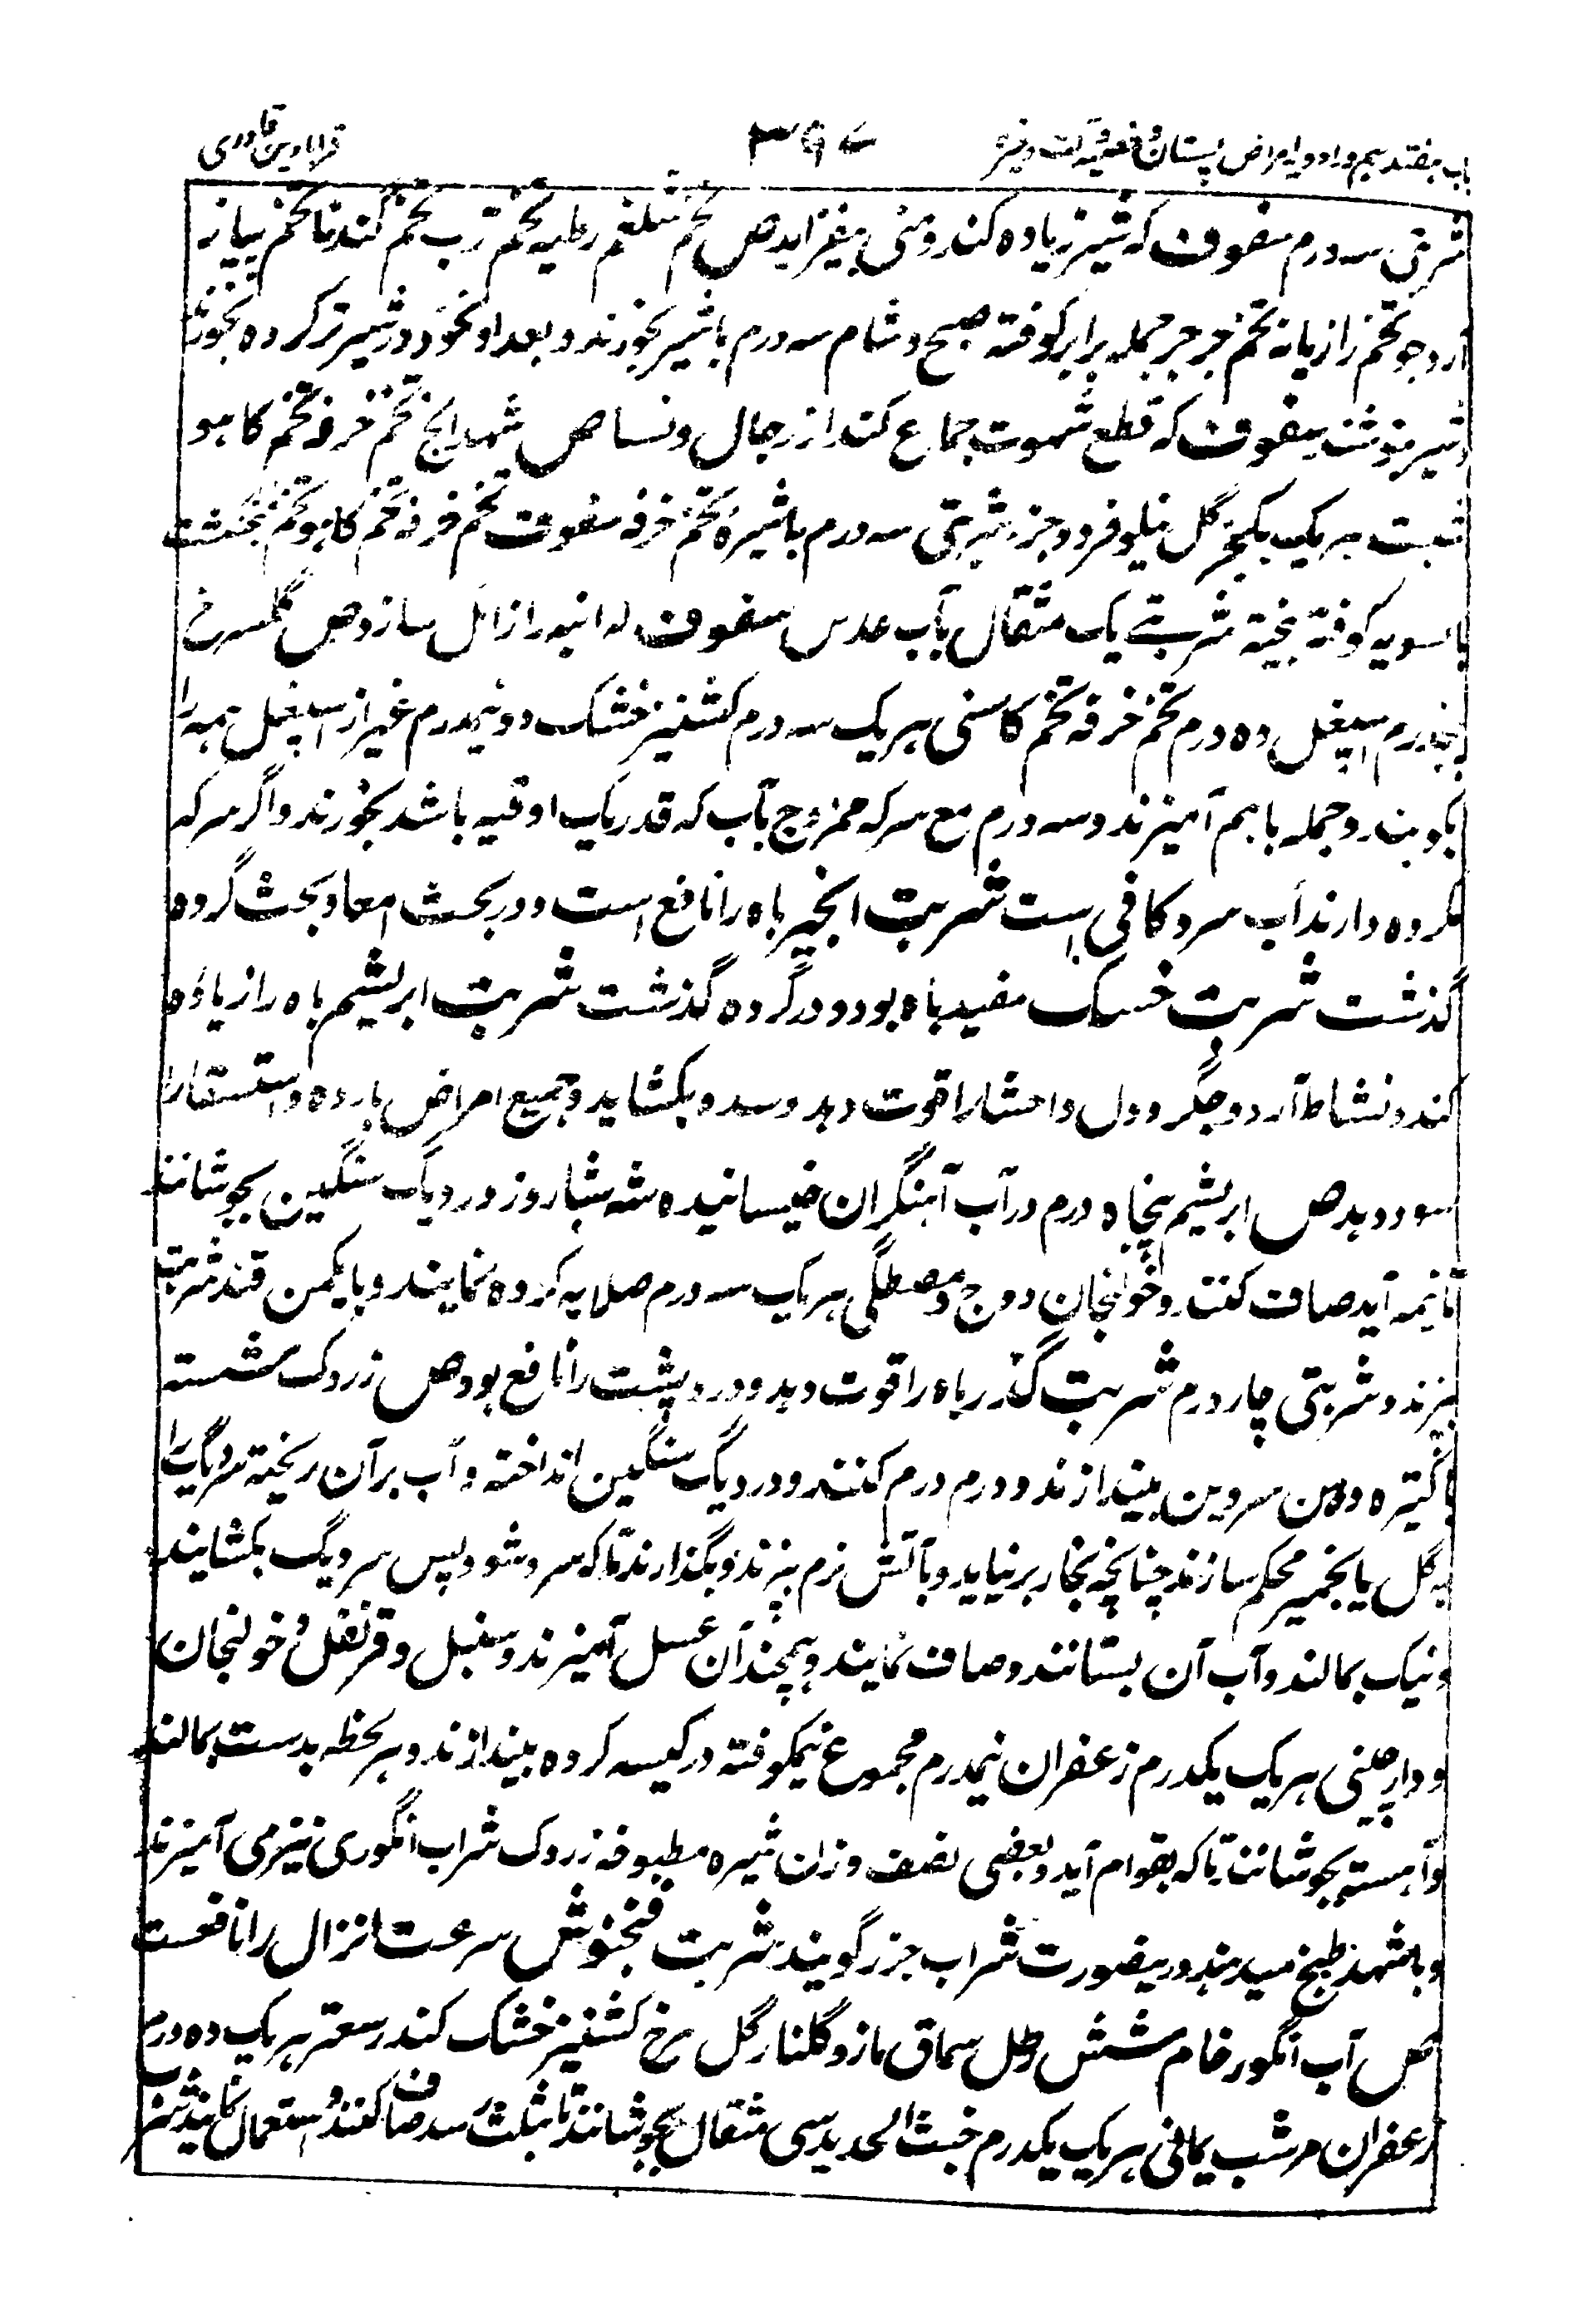 باب هفتدہم در ادویه امراض پستان و خصیه و آلت وغیره ۳۶۷ قرابادین قادری
شربتی سه درم سفوف که شیر زیاده کند و منی بیفزاید ص تخم شلغم رطبه تخم ترب تخم گندنا تخم پیاز
آرد جو تخم رازیانه تخم جرجیر جمله برابر کوفته صبح و شام سه درم با شیر بخورند و بعد او نخود در شیر تر کرده بخورند
و شیر بنوشند سفوف که قطع شهوت جماع کند از رجال و نسا ص شهدانج تخم خرفه تخم کاهو
شبت هر یک یکجز گل نیلوفر دو جز شربتی سه درم با شیره تخم خرفه سفوف تخم خرفه تخم کاهو تخم پنجنگشت
بالسویه کوفته بیخته شربتے یک مثقال بآب عدس سفوف که انبه را زائل سازد ص گلسرخ
پنجدرم اسپغل ده درم تخم خرفه تخم کاسنی هر یک سه درم کشنیز خشک دو نیمدرم غیر از اسپغل همه را
بکوبند و جمله باهم آمیزند و سه درم مع سرکه ممزوج بآب که قدر یک اوقیه باشد بخورند و اگر سرکه
مکروه دارند آب سرد کافی است شربت انجیر باه را نافع است و در بحث امعا و بحث گرده
گذشت شربت خسک مفید باه بود و در گرده گذشت شربت ابریشم باه را زیاده
کند و نشاط آرد و جگر و دل و احشا را قوت دهد و سدد بکشاید و جمیع امراض بارده و استسقا را
سود دهد ص ابریشم پنجاه درم در آب آهنگران خیسانیده سه شبا روز در دیگ سنگین بجوشانند
تا نیمه آید صاف کنند و خولنجان و وج و مصطگی هر یک سه درم صلایه کرده نمایند و با یکمن قند شربت
پزند و شربتی چار درم شربت گذر باه را قوت دهد و درد پشت را نافع بود ص زردک شسته
پاکتیزه و بن و سر وی بیندازند و درم درم کنند و در دیگ سنگین انداخته و آب بر آن ریخته سر دیگ را
به گل یا بخمیر محکم سازند چنانچه بخار بر نیاید و بآتش نرم پزند و بگذارند تا که سرد شود پس سر دیگ بکشایند
و نیک بمالند و آب آن بستانند و صاف نمایند و همچند آن عسل آمیزند و سنبل و قرنفل و خولنجان
و دارچینی هر یک یکدرم زعفران نیمدرم مجموع نیمکوفته در کیسه کرده بیندازند و هر لحظه بدست بمالند
و آهسته بجوشانند تا که بقوام آید و بعضی نصف وزن شیره مطبوخه زردک شراب انگوری نیز می آمیزند
و با شهد طبخ میدهند و درینصورت شراب جزر گویند شربت فنجنوش سرعت انزال را نافعست
ص آب انگور خام شش رطل سماق مازو گلنار گل سرخ کشنیز خشک کندر سعتر هر یک ده درم
زعفران مر شب یمانی هر یک یکدرم خبث الحدید سی مثقال بجوشانند تا بثلث رسد صاف کنند و استعمال نمایند